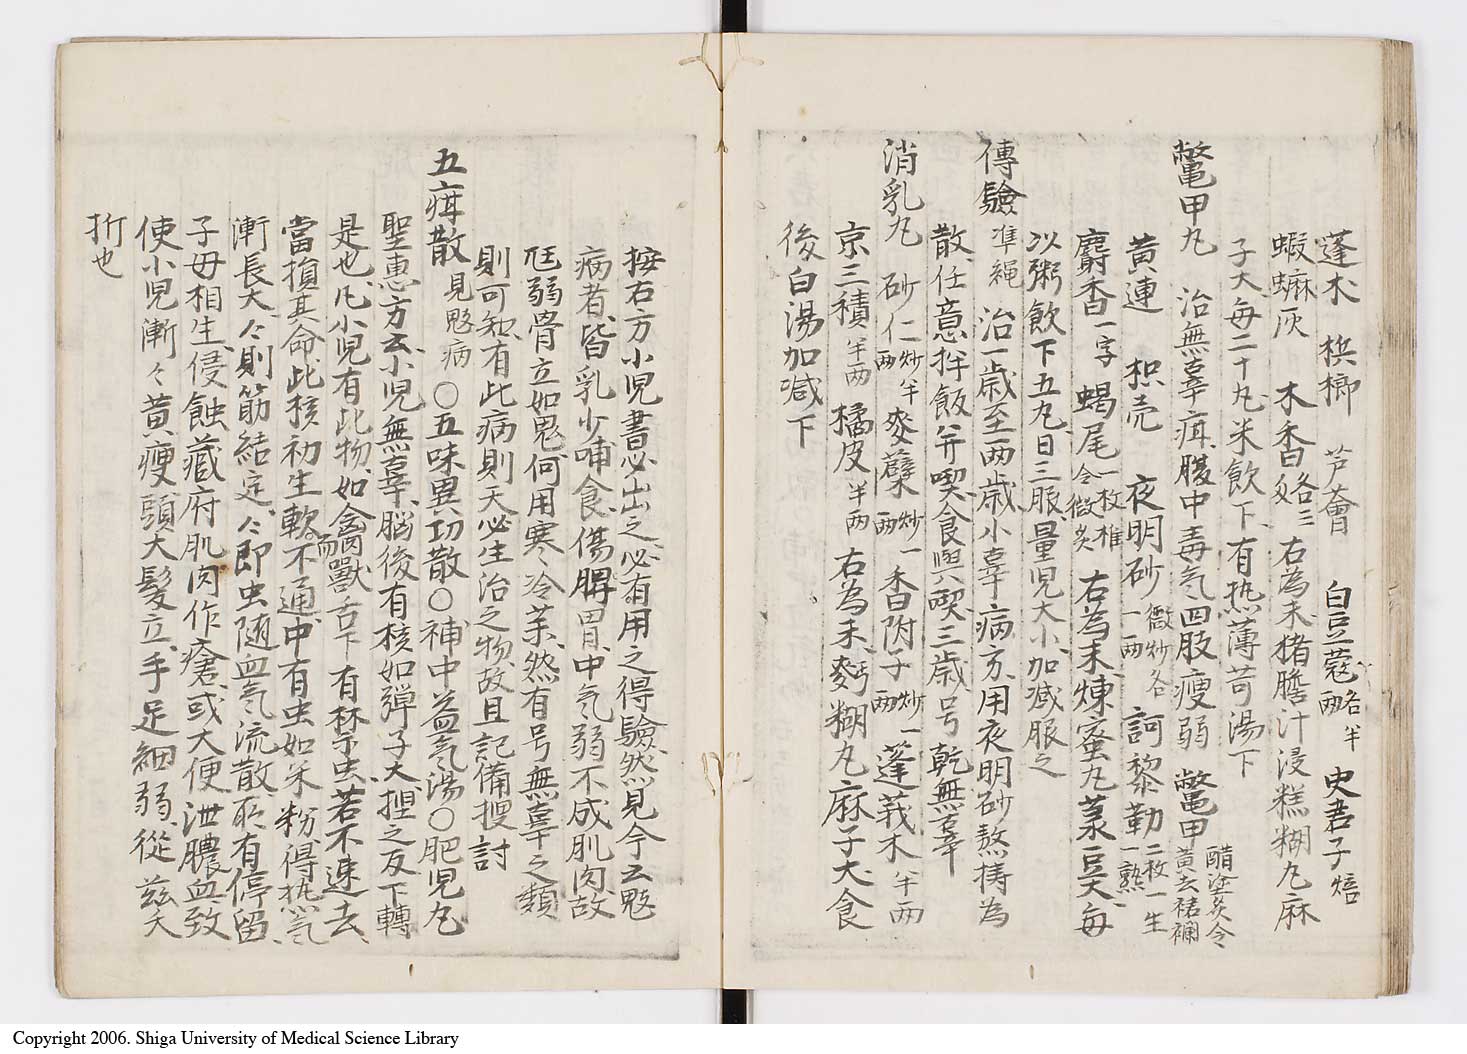 蓬朮 梹榔 芦薈 白豆蔻各半兩 史君子焙
蝦蟆灰 木香各三 右為末猪膽汁浸糕糊丸麻
子大每二十丸米飲下有热薄苛湯下
鱉甲丸 治無辜疳腹中毒气四肢瘦弱 鱉甲醋塗炙令黄去裙襴
黄連 枳売 夜明砂微炒各一兩 訶黎勒二枚一生一熟
麝香一字 蝎尾一枚椎令微炙 右為末煉蜜丸菉豆大每
以粥飲下五丸日三服量児大小加减服之
傳驗凖䋲 治一歳至两歳小辜病方用夜明砂熬擣為
散任意拌飯并喫食與喫三歳号乾無辜
消乳丸 砂仁炒半兩 麥蘖炒一兩 香附子炒一兩 蓬莪朮半两
京三積半两 橘皮半两 右為末麪糊丸麻子大食
後白湯加减下
按右方小児書必出之必有用之得驗然見今云鬾
病者皆乳少哺食傷脾胃中气弱不成肌肉故
尫弱骨立如鬼何用寒冷茱然有号無辜之類
則可知有此病則天必生治之物故且記備搜討
五疳散見鬾病 〇五味異功散〇補中益气湯〇肥児丸
聖惠方云小児無辜脳後有核如弾子大揑之反下轉
是也凡小児有此物如禽獸舌下有禁虫若不速去
當損其命此核初生軟而不通中有虫如米粉得热气
漸長大々則筋結定々即虫随血气流散所有停留
子母相生侵蝕藏府肌肉作瘡或大便泄膿血致
使小児漸々黄瘦頭大髮立手足細弱從兹夭
折也
Copyright 2006. Shiga University of Medical Science Library